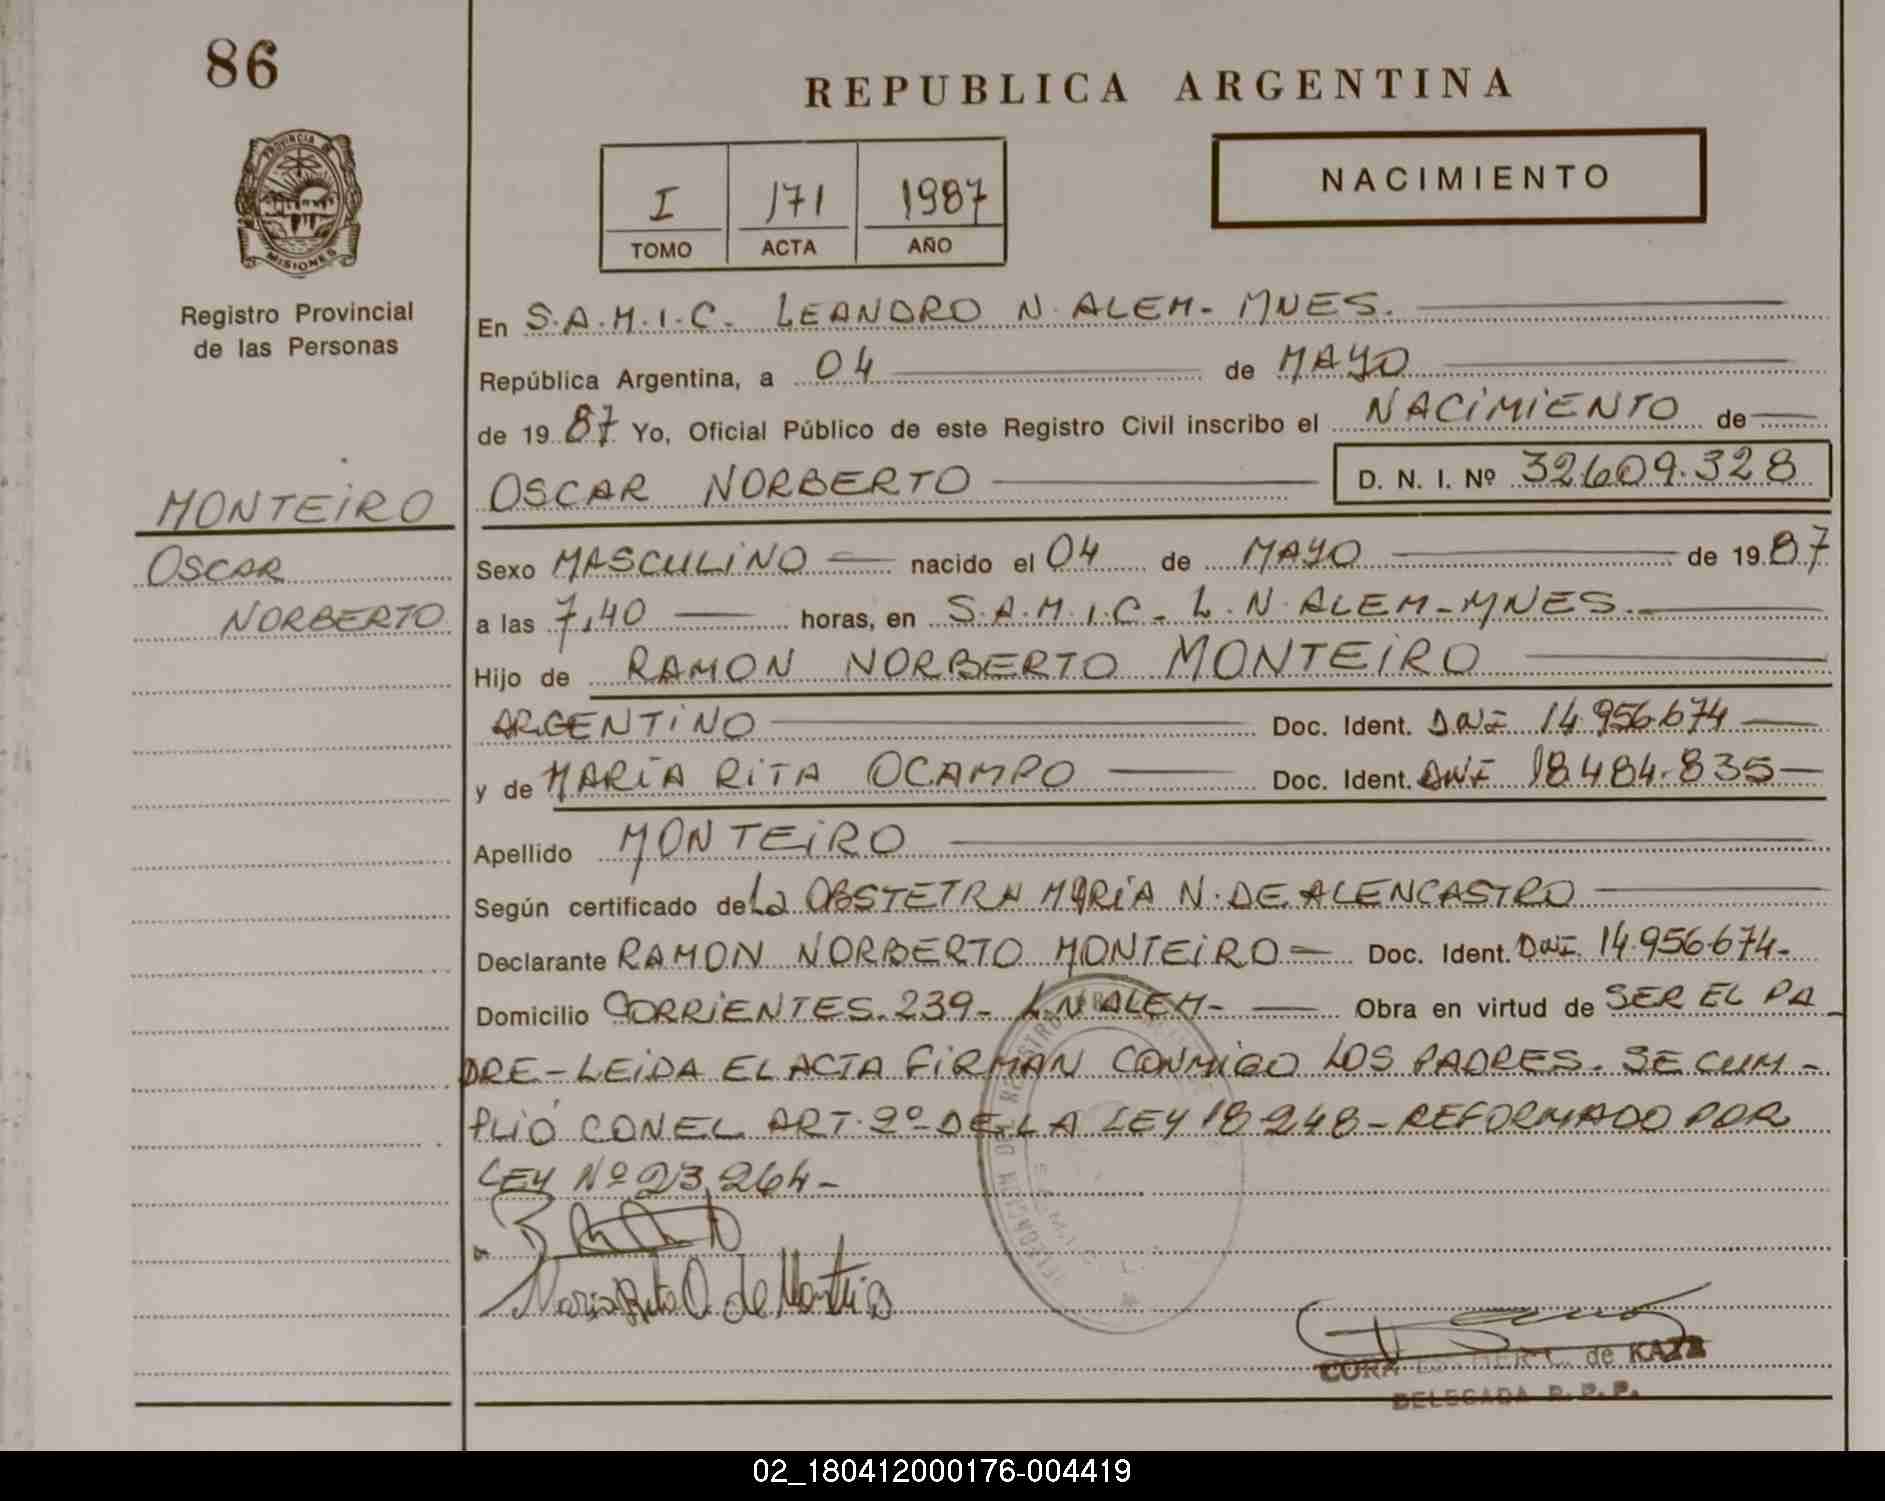 86
REPUBLICA ARGENTINA
PROVINCIA DE
MISIONES
Registro Provincial
de las Personas
I 171 1987
TOMO ACTA AÑO
NACIMIENTO
En S.A.M.I.C. LEANDRO N. ALEM - MNES.
República Argentina, a 04 de MAYO
de 1987 Yo, Oficial Público de este Registro Civil inscribo el NACIMIENTO de
MONTEIRO
OSCAR NORBERTO D. N. I. Nº 32.609.328
OSCAR
NORBERTO
Sexo MASCULINO nacido el 04 de MAYO de 1987
a las 7,40 horas, en S.A.M.I.C. - L. N. ALEM - MNES.
Hijo de RAMON NORBERTO MONTEIRO
ARGENTINO Doc. Ident. DNI 14.956.674
y de MARÍA RITA OCAMPO Doc. Ident. DNI 18.484.835
Apellido MONTEIRO
Según certificado de La OBSTETRA MARÍA N. DE ALENCASTRO
Declarante RAMON NORBERTO MONTEIRO Doc. Ident. DNI 14.956.674-
Domicilio CORRIENTES 239 - L.N. ALEM - Obra en virtud de SER EL PA
DRE - LEIDA EL ACTA FIRMAN CONMIGO LOS PADRES. SE CUM-
PLIÓ CON EL ART. 2º DE LA LEY 18.248 - REFORMADO POR
LEY Nº 23.264 -
Maria Rita O. de Monteiro
de KATZ
DELEGADA R. P. P.
02_180412000176-004419